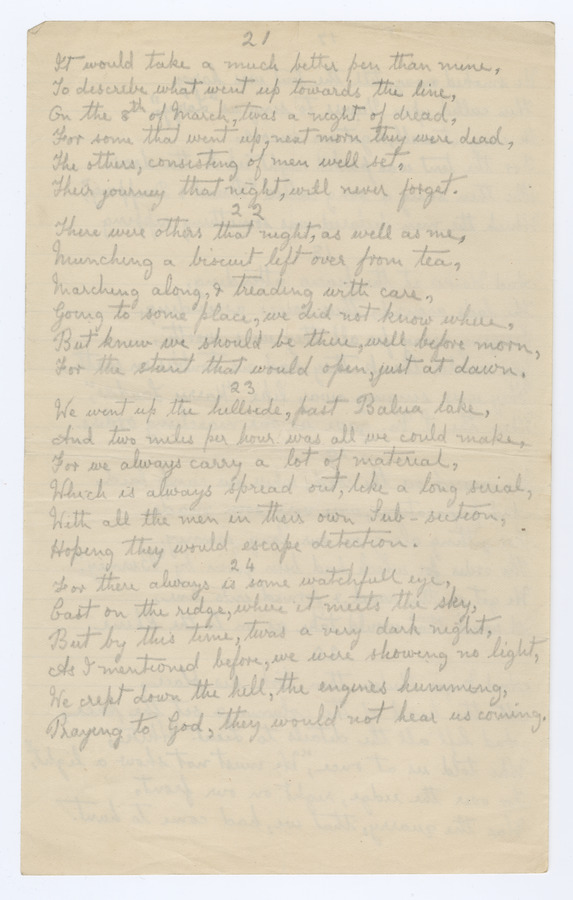 21
It would take a much better pen than mine,
To describe what went up towards the line,
On the 8th of March, twas a night of dread,
For some that went up, next morn they were dead,
The others, consisting of men well set,
Their journey that night, will never forget.
22
There were others that night, as well as me,
Munching a biscuit left over from tea,
Marching along, & treading with care,
Going to some place, we did not know where,
But knew we should be there, well before morn,
For the stunt that would open, just at dawn.
23
We went up the hillside, past Balua lake,
And two miles per hour was all we could make,
For we always carry a lot of material,
Which is always spread out, like a long serial,
With all the men in their own Sub-section,
Hoping they would escape detection.
24
For there always is some watchfull eye,
Cast on the ridge, where it meets the sky,
But by this time, twas a very dark night,
As I mentioned before, we were showing no light,
We crept down the hill, the engines humming,
Praying to God, they would not hear us coming.